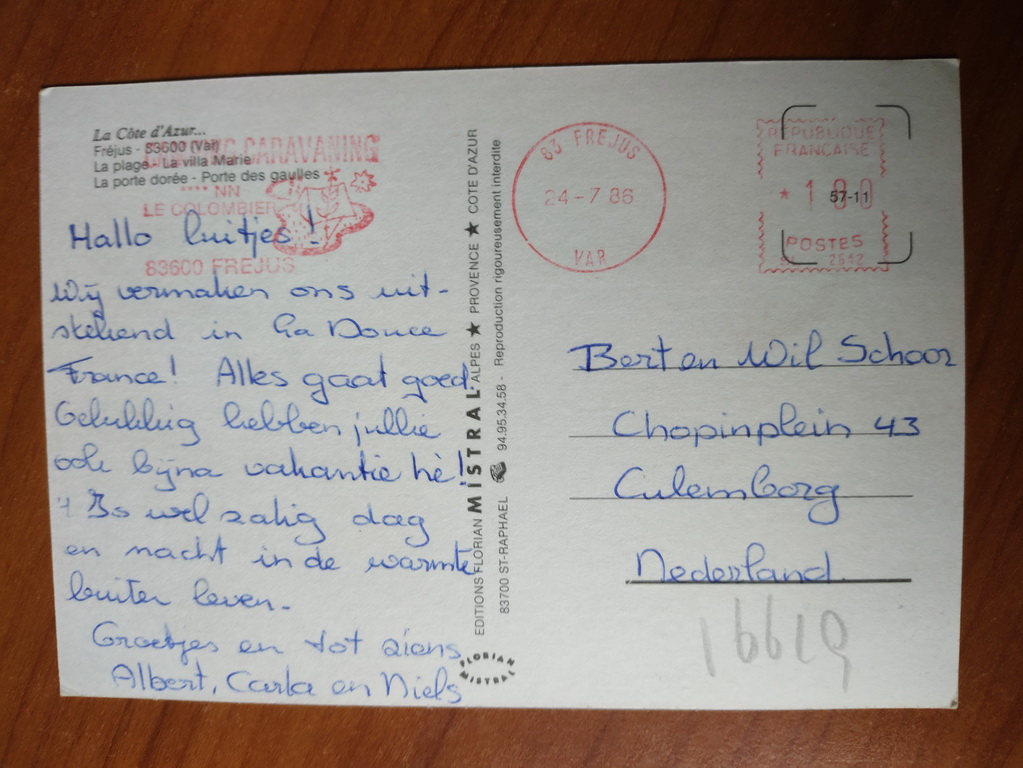 La Côte d'Azur...
Fréjus - 83600 (Var)
La plage - La villa Marie
La porte dorée - Porte des gaulles
CARAVANING
**** NN
LE COLOMBIER
83600 FREJUS
Hallo luitjes!
Wij vermaken ons uit-
stekend in La Douce
France! Alles gaat goed.
Gelukkig hebben jullie
ook bijna vakantie hè!
't Is wel zalig dag
en nacht in de warmte
buiten leven.
Groetjes en tot ziens
Albert, Carla en Niels
EDITIONS FLORIAN MISTRAL ALPES ★ PROVENCE ★ COTE D'AZUR
83700 ST-RAPHAEL 94.95.34.58 - Reproduction rigoureusement interdite
FLORIAN
MISTRAL
83 FREJUS
24-7 86
VAR
REPUBLIQUE
FRANCAISE
* 1 80
57-11
POSTES
2642
Bert en Wil Schoor
Chopinplein 43
Culemborg
Nederland
16619